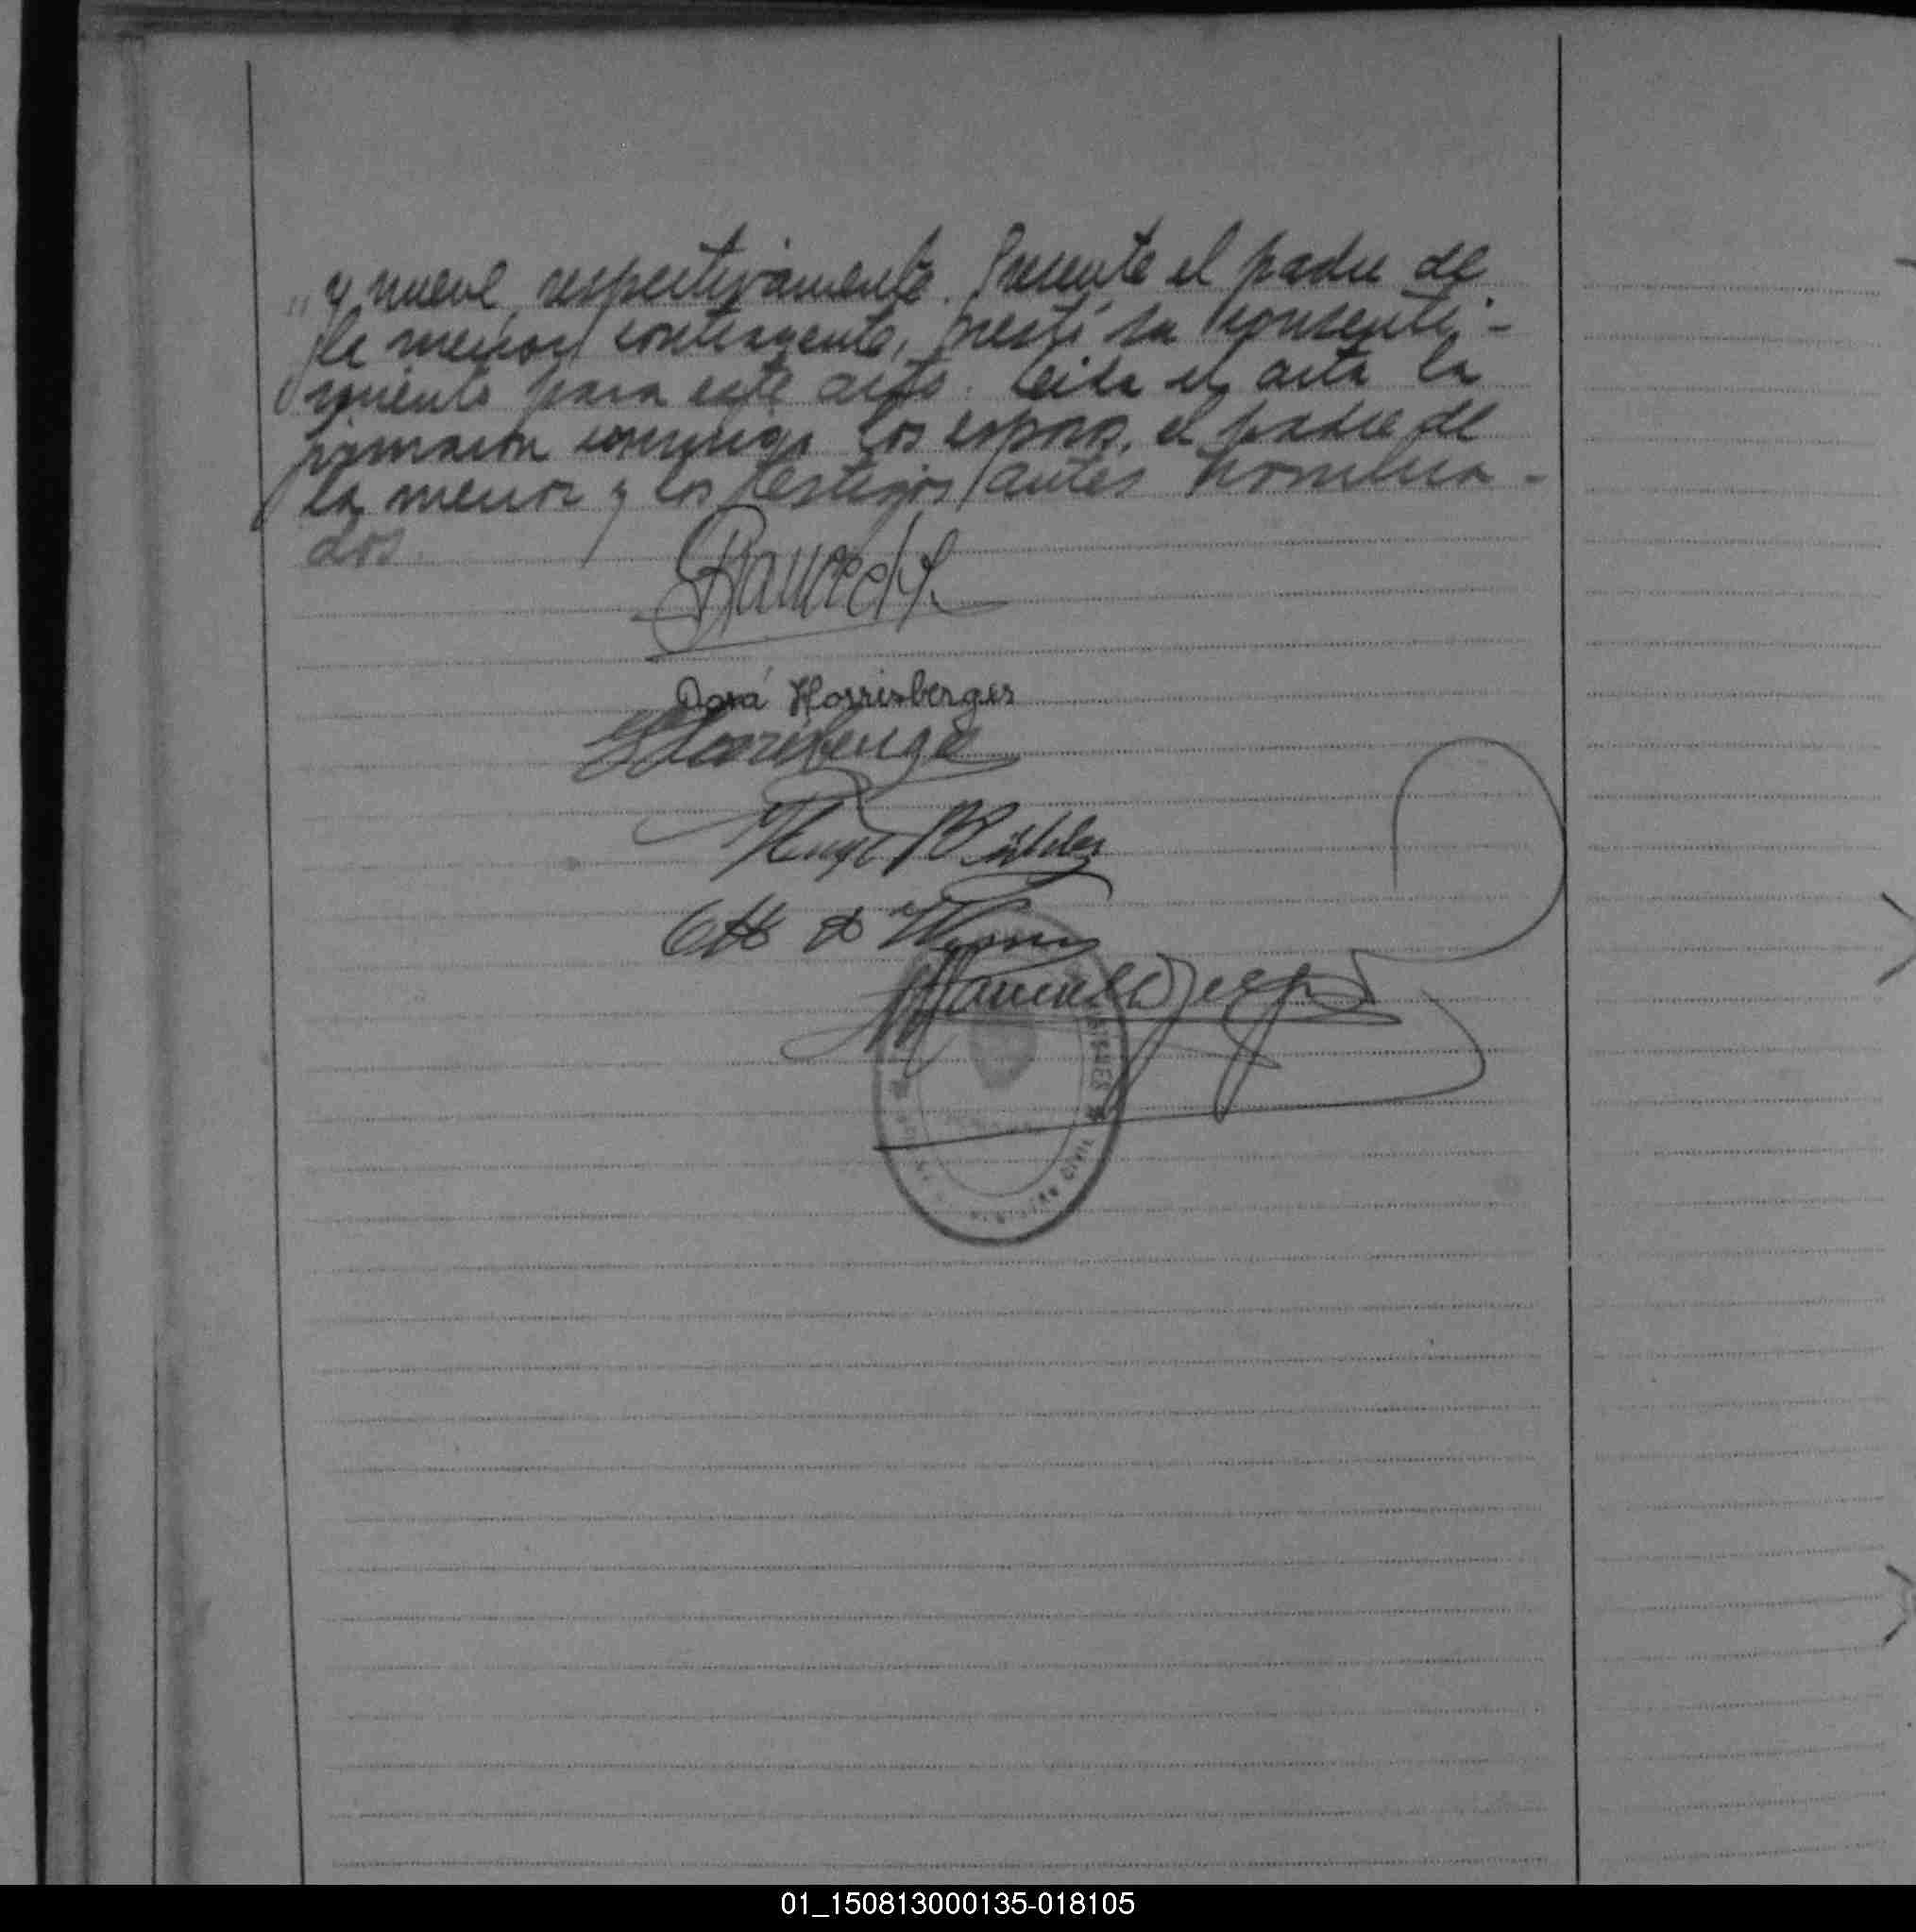 „ y nueve, respectivamente. Presente el padre de
la menor contrayente, prestó su consenti-
miento para este acto. Leida el acta la
firmaron conmigo los esposos, el padre de
la menor y los testigos antes nombra-
dos.
Dora Horrisberger
Horrisberger
Hugo
Otto
Manuel
REGISTRO CIVIL
01_150813000135-018105